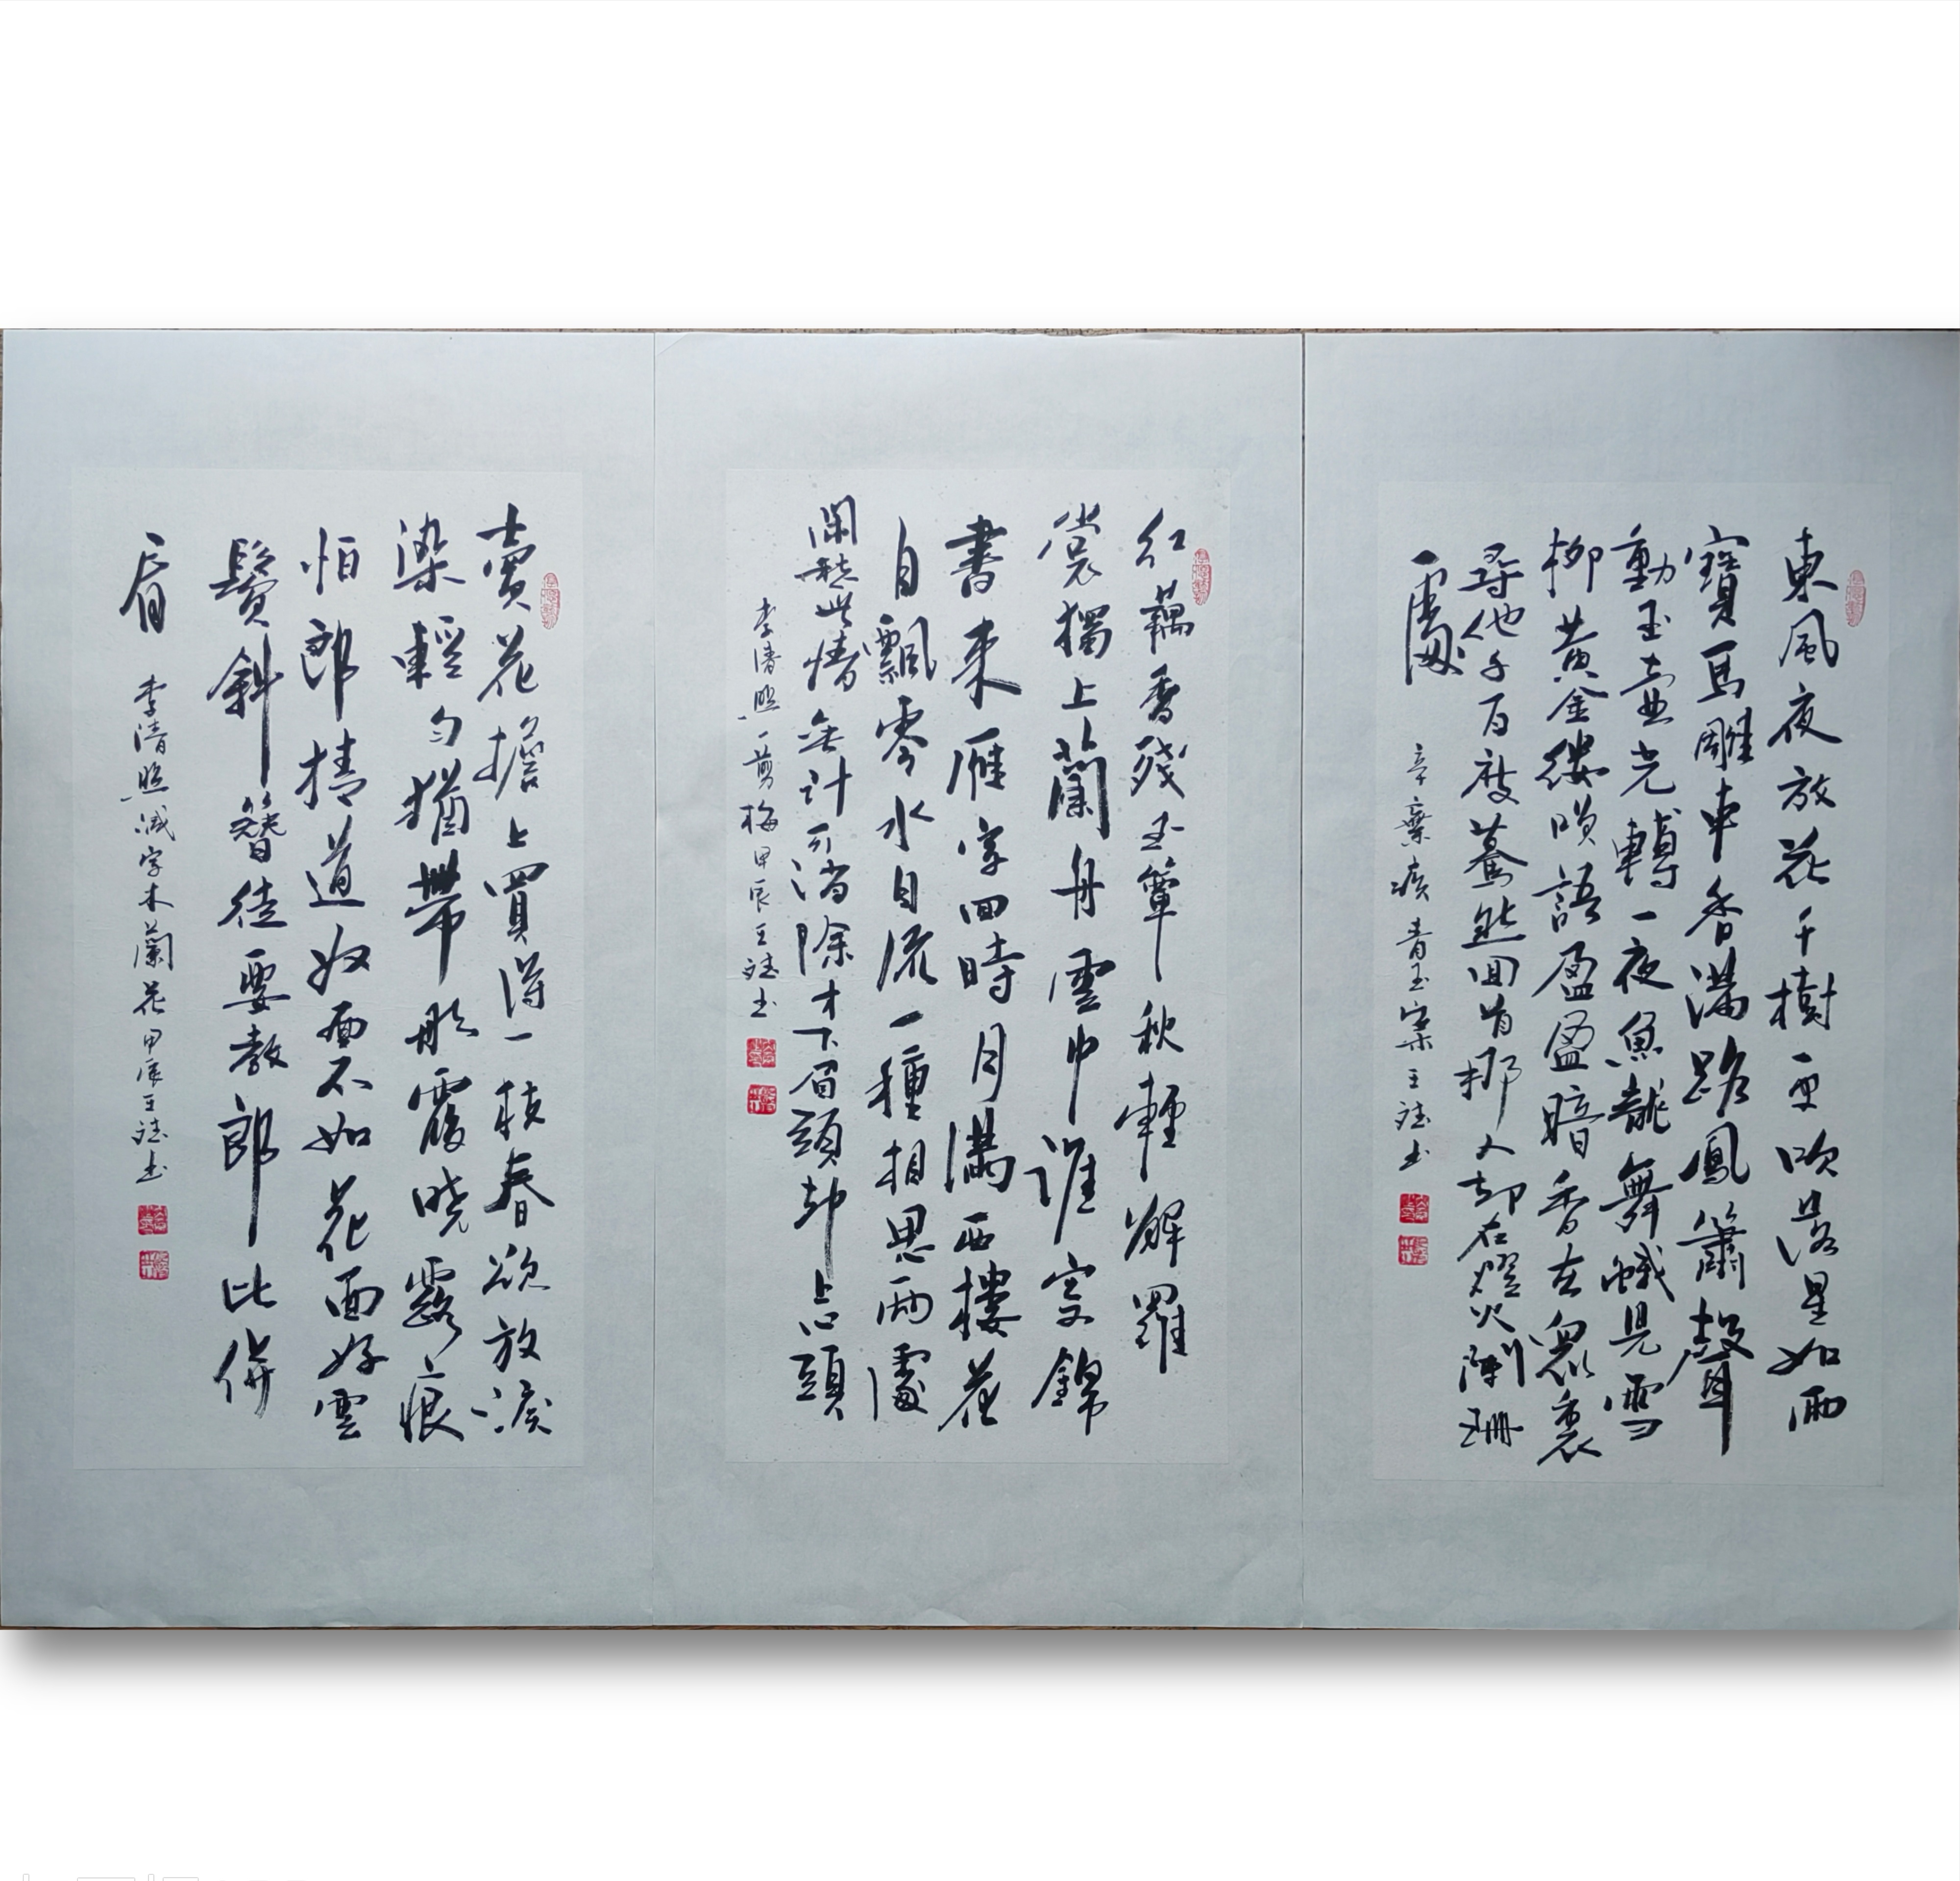 東風夜放花千樹更吹落星如雨
寶馬雕車香滿路鳳簫聲
動玉壺光轉一夜魚龍舞蛾兒雪
柳黃金縷笑語盈盈暗香去眾裏
尋他千百度驀然回首那人却在燈火闌珊
處
辛棄疾青玉案王书
紅藕香殘玉簟秋輕解羅
裳獨上蘭舟雲中誰寄錦
書來雁字回時月滿西樓花
自飄零水自流一種相思兩處
閑愁此情無計可消除才下眉頭却上心頭
李清照一剪梅甲辰王书
賣花擔上買得一枝春欲放淚
染輕勻猶帶彤霞曉露痕
怕郎猜道奴面不如花面好雲
鬢斜簪徒要教郎比併
看
李清照減字木蘭花甲辰王书